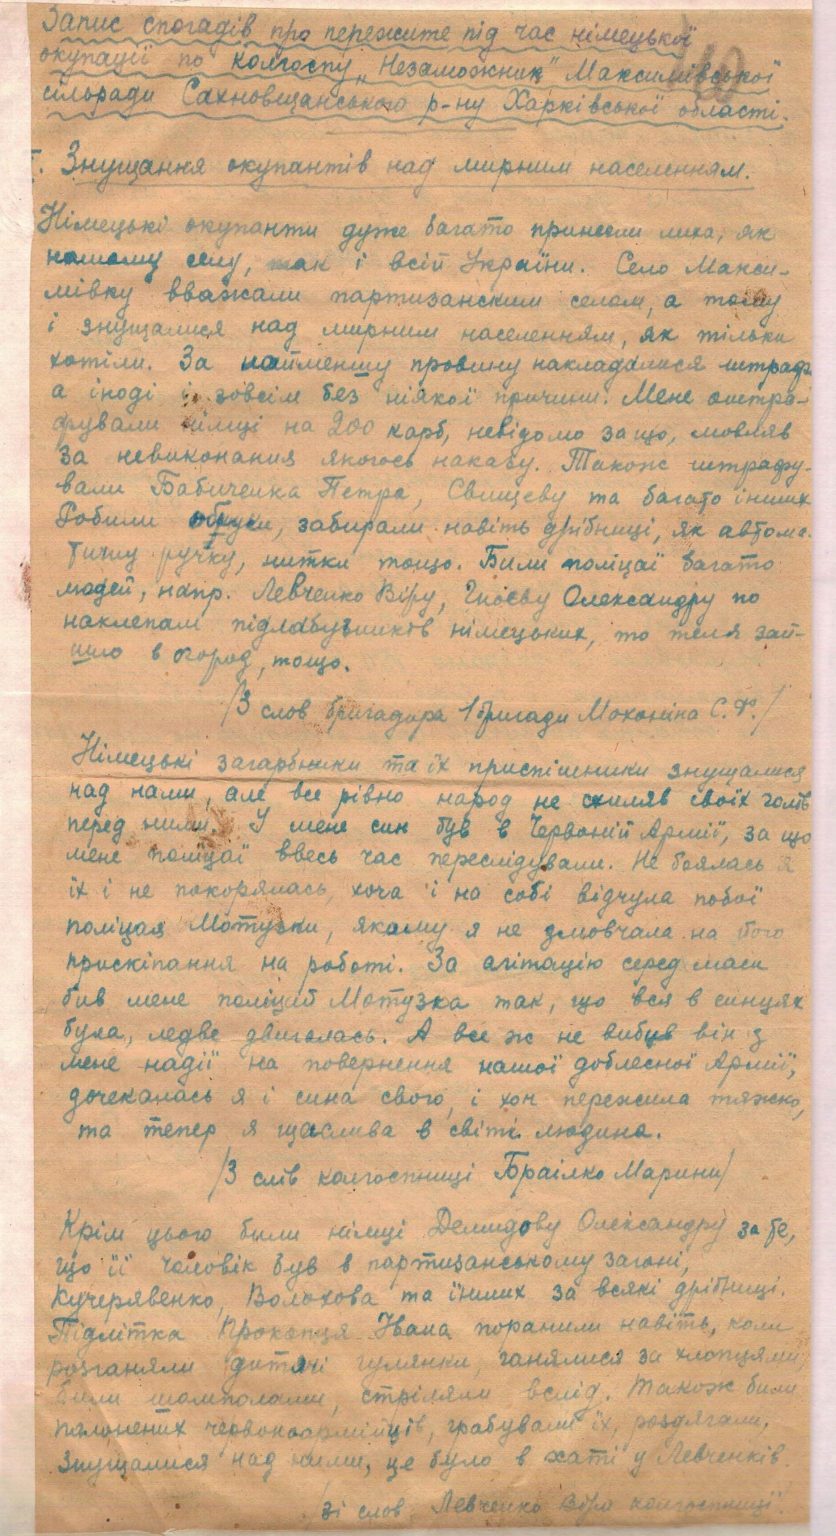 Запис спогадів про пережите під час німецької
окупації по колгоспу „Незаможник" Максимівської
сільради Сахновщанського р-ну Харківської області.
І. Знущання окупантів над мирним населенням.
Німецькі окупанти дуже багато принесли лиха, як
нашому селу, так і всій Україні. Село Макси-
мівку вважали партизанским селом, а тому
і знущалися над мирним населенням, як тільки
хотіли. За найменшу провину накладалися штрафи
а іноді і зовсім без ніякої причини. Мене оштра-
фували німці на 200 карб, невідомо за що, мовляв
за невиконання якогось наказу. Також штрафу-
вали Бабиченка Петра, Свищеву та багато інших
Робили обруси, забирали навіть дрібниці, як автома-
тичну ручку, нитки тощо. Били поліцаї багато
людей, напр. Левченко Віру, Гноєву Олександру по
наклепам підлабузників німецьких, то теля зай-
шло в огород, тощо.
/З слов бригадира 1 бригади Моконіна С.Ф./
Німецькі загарбники та їх приспішники знущалися
над нами, але все рівно народ не схиляв своїх голів
перед ними. У мене син був в Червоній Армії, за що
мене поліцаї ввесь час переслідували. Не боялась я
їх і не покорялась, хоча і на собі відчула побої
поліцая Мотузки, якому я не змовчала на його
прискіпання на роботі. За агітацію серед маси
бив мене поліцай Мотузка так, що вся в синцях
була, ледве двигалась. А все ж не вибив він з
мене надії на повернення нашої доблесної Армії,
дочекалась я і сина свого, і хоч пережила тяжко,
та тепер я щаслива в світі людина.
/З слів колгоспниці Браілко Марини/
Крім цього били німці Демидову Олександру за те,
що її чоловік був в партизанському загоні,
Кучерявенко, Волохова та інших за всякі дрібниці.
Підлітка Прокопця Івана поранили навіть, коли
розганяли дитячі гулянки, ганялися за хлопцями,
били шомполами, стріляли вслід. Також били
полонених червоноармійців, грабували їх, роздягали,
Знущалися над ними, це було в хаті у Левченків.
/зі слов Левченко Віри колгоспниці/